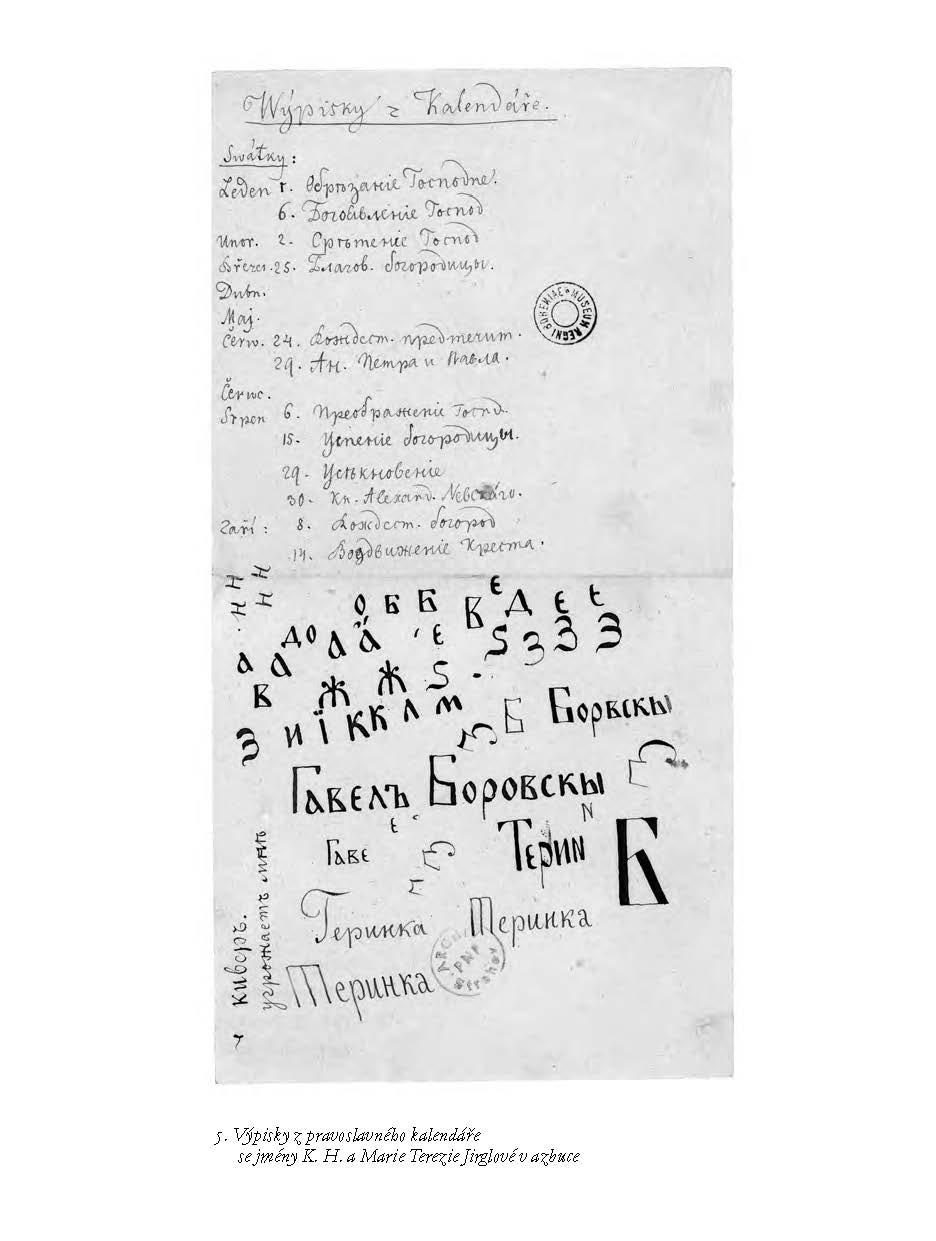 Wýpisky z Kalendáře.
Swátky:
Leden 1. Обрѣзаніе Господне.
6. Богоявленіе Господ
Unor. 2. Срѣтеніе Господ
Březen. 25. Благов. богородицы.
Dubn.
Maj.
Čerw. 24. Рождест. предтечит.
29. Ап. Петра и Павла.
Čerwc.
Srpen 6. Преображеніе Господ.
15. Успеніе богородицы.
29. Усѣкновеніе
30. Кн. Alexand. Nevскаго.
Zaří: 8. Рождест. богород
14. Воздвиженіе Креста.
· Н Н
Н Н
О Б Б В Є Д Є Є Є
А А Д О А Ӓ ʼ Є Ѕ З З З
В Ж Ж Ѕ -
З И Ї К К Л М З Б Борвскы
Гавелъ Боровскы З
Є N
Гаве З Терин Б
Теринка Теринка
Теринка
киверъ.
угрожаетъ мнѣ
MUSEUM REGNI BOHEMIAE
ARCHIV PNP Strahov
5. Výpisky z pravoslavného kalendáře
se jmény K. H. a Marie Terezie Jirglové v azbuce